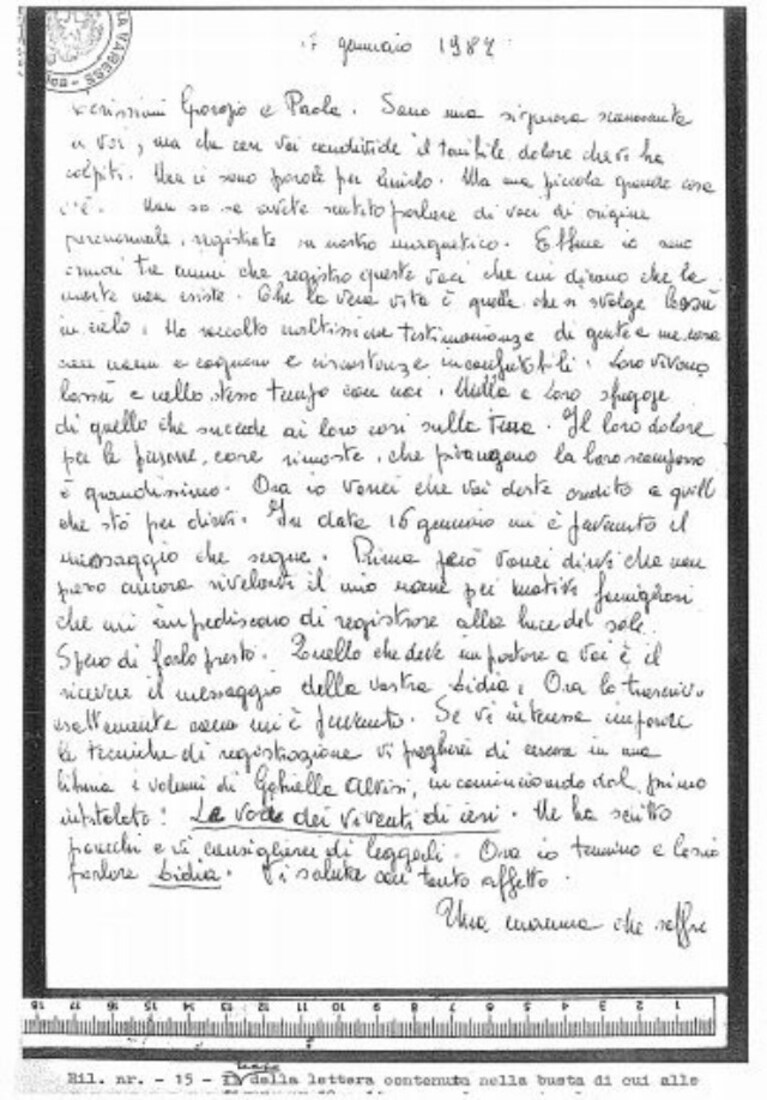 VARESE
17 gennaio 1987
Carissimi Giorgio e Paola. Sono una signora sconosciuta
a voi, ma che con voi condivide il terribile dolore che vi ha
colpiti. Non ci sono parole per lenirlo. Ma una piccola grande cosa
c'è. Non so se avete sentito parlare di voci di origine
paranormale, registrate su nastro magnetico. Ebbene io sono
ormai tre anni che registro queste voci che mi dicono che la
morte non esiste. Che la vera vita è quella che si svolge lassù
in cielo. Ho raccolto moltissime testimonianze di gente a me cara
con nomi e cognomi e circostanze inconfutabili. Loro vivono
lassù e nello stesso tempo con noi. Nulla a loro sfugge
di quello che succede ai loro cari sulla terra. Il loro dolore
per le persone care rimaste, che piangono la loro scomparsa
è grandissimo. Ora io vorrei che voi deste credito a quello
che sto per dirvi. In data 16 gennaio mi è pervenuto il
messaggio che segue. Prima però vorrei dirvi che non
posso ancora rivelarvi il mio nome per motivi famigliari
che mi impediscono di registrare alla luce del sole.
Spero di farlo presto. Quello che deve importare a voi è il
ricevere il messaggio della vostra Lidia. Ora lo trascrivo
esattamente come mi è pervenuto. Se vi interessa imparare
le tecniche di registrazione vi pregherei di cercare in una
libreria i volumi di Gabriella Alvisi, incominciando dal primo
intitolato: La voce dei viventi di ieri. Ne ha scritto
parecchi e vi consiglierei di leggerli. Ora io termino e lascio
parlare Lidia. Vi saluto con tanto affetto.
Una mamma che soffre
18 17 16 15 14 13 12 11 10 9 8 7 6 5 4 3 2 1
Ril. nr. - 15 - della lettera contenuta nella busta di cui alle